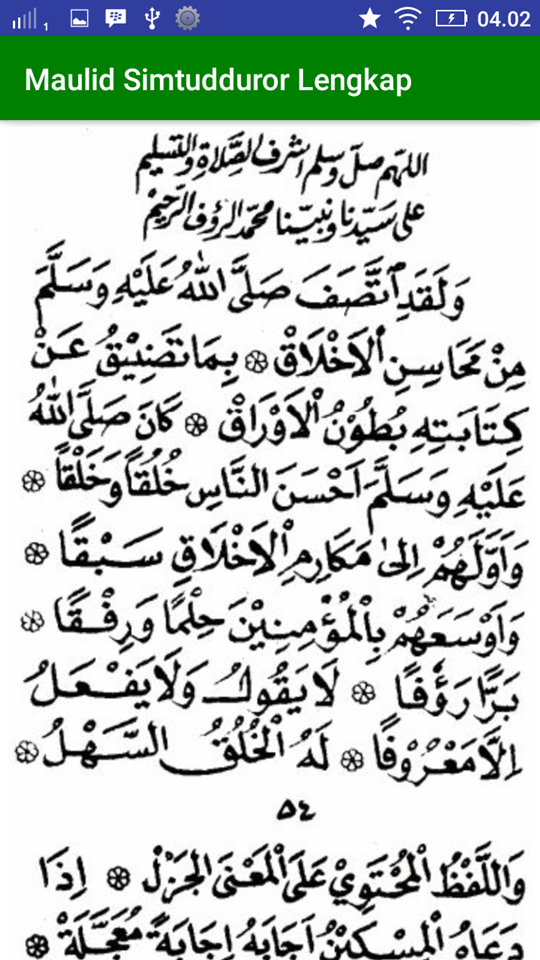 1 04.02
Maulid Simtudduror Lengkap
اللهم صل وسلم اشرف الصلاة والتسليم
على سيدنا ونبينا محمد الرؤف الرحيم
وَلَقَدِ اتَّصَفَ صَلَّى اللهُ عَلَيْهِ وَسَلَّمَ
مِنْ مَحَاسِنِ اْلاَخْلاَقْ ۞ بِمَا تَضِيْقُ عَنْ
كِتَابَتِهِ بُطُوْنُ اْلاَوْرَاقْ ۞ كَانَ صَلَّى اللهُ
عَلَيْهِ وَسَلَّمَ اَحْسَنَ النَّاسِ خُلُقًا وَخَلْقًا ۞
وَاَوَّلَهُمْ اِلىٰ مَكَارِمِ اْلاَخْلاَقِ سَبْقًا ۞
وَاَوْسَعَهُمْ بِاْلمُؤْمِنِيْنَ حِلْمًا وَرِفْقًا ۞
بَرًّا رَؤُفًا ۞ لاَ يَقُوْلُ وَلاَ يَفْعَلُ
اِلاَّ مَعْرُوْفًا ۞ لَهُ اْلخُلُقُ السَّهْلُ ۞
٥٤
وَاللَّفْظُ اْلمُحْتَوِيْ عَلَى اْلمَعْنَى اْلجَزْلْ ۞ اِذَا
دَعَاهُ اْلمِسْكِيْنُ اَجَابَهُ اِجَابَةً مُعَجَّلَةْ ۞